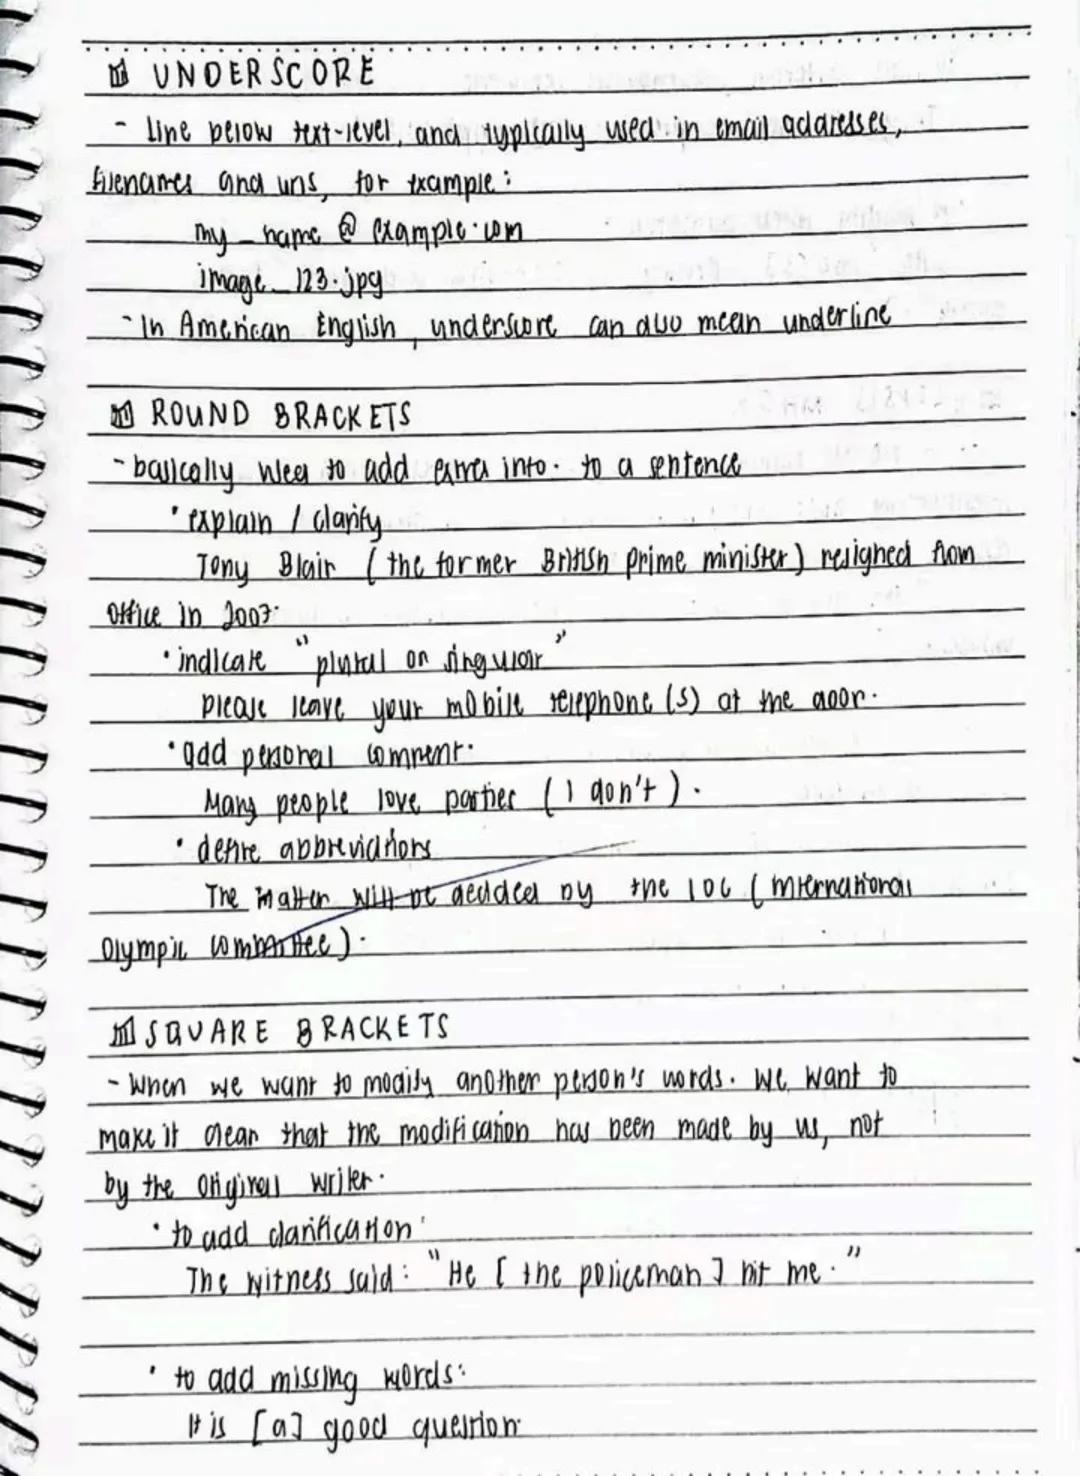 UNDERSCORE
- Line below text-level, and typically used in email addresses,
filenames and urls, for example:
my_name@example.com
image_123.jpg
- In American English, underscore can also mean underline
ROUND BRACKETS
- basically used to add extra info. to a sentence
• explain / clarify
Tony Blair (the former British prime minister) resigned from
office in 2007.
• indicate "plural or singular"
Please leave your mobile telephone (s) at the door.
• add personal comment.
Many people love parties (I don't).
• define abbreviations
The matter will be decided by the IOC (International
Olympic Committee).
SQUARE BRACKETS
- When we want to modify another person's words. We want to
make it clear that the modification has been made by us, not
by the original writer.
• to add clarification:
The witness said: "He [the policeman] hit me."
• to add missing words:
It is [a] good question.